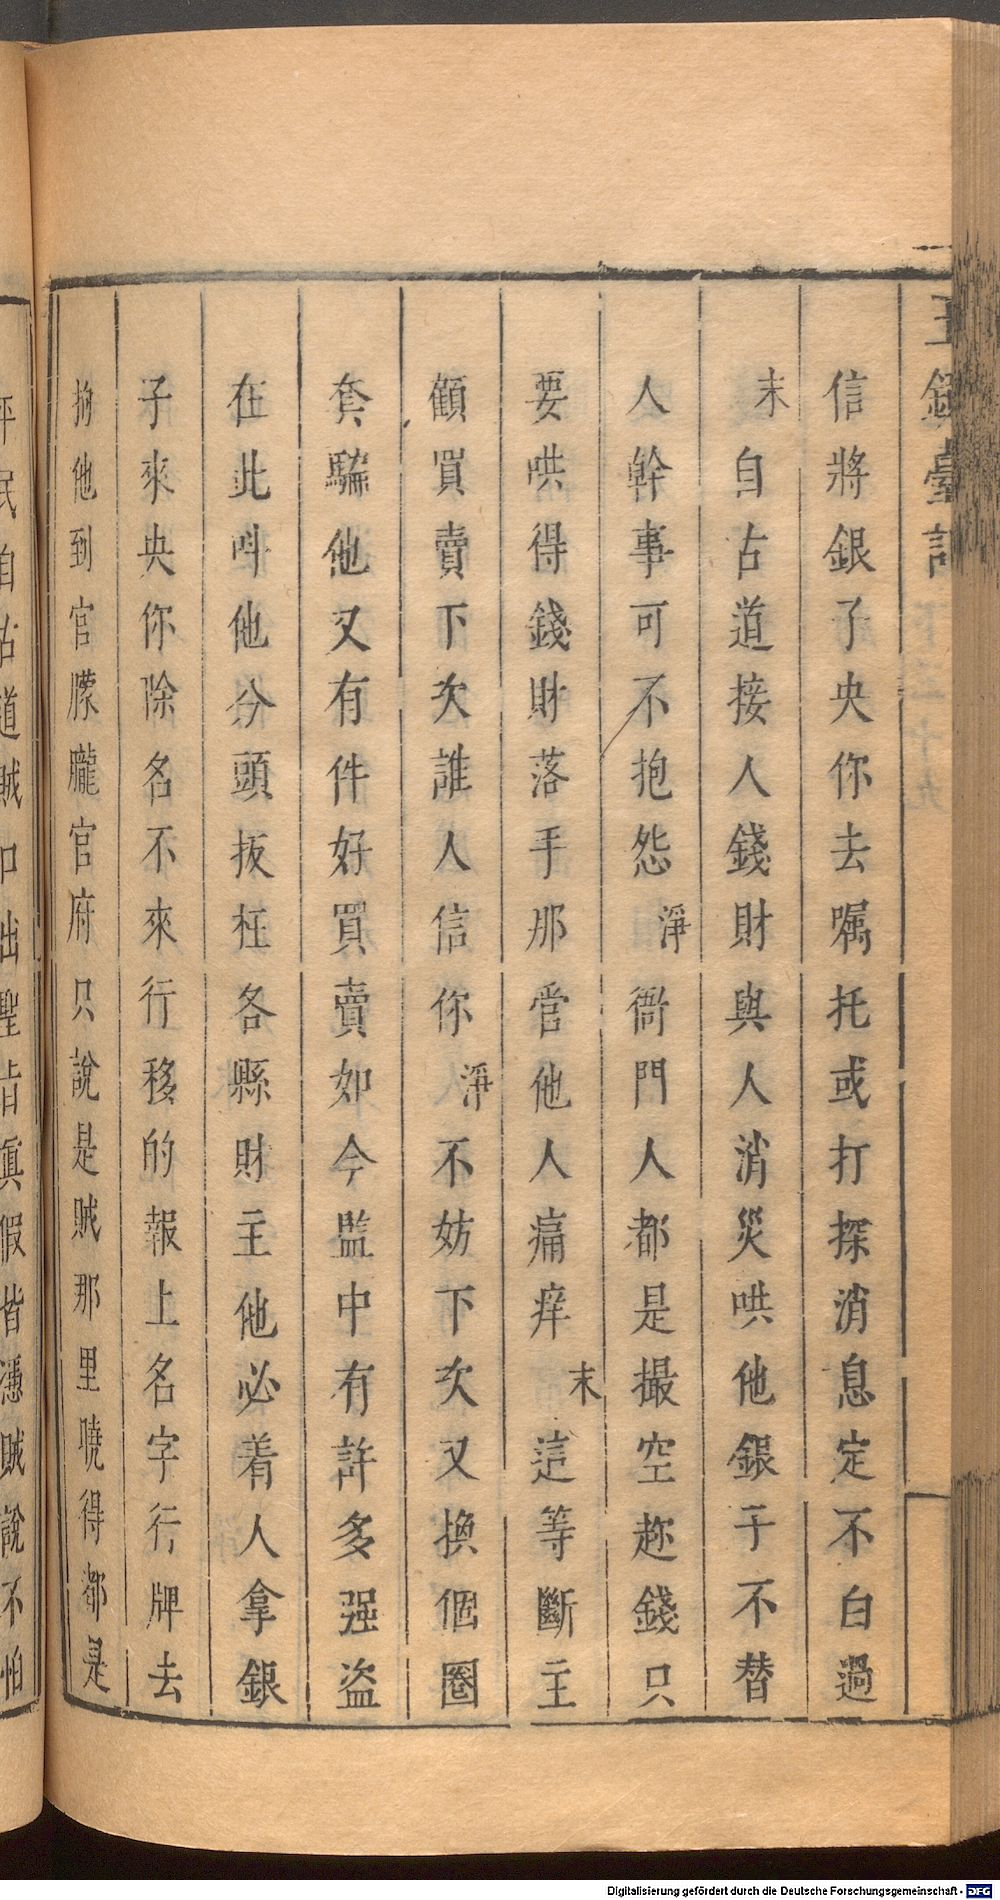 玉鏡臺記 下 三十九
信將銀子央你去嘱托或打探消息定不白過
末自古道接人錢財與人消災哄他銀子不替
人幹事可不抱怨淨衙門人都是撮空趂錢只
要哄得錢財落手那管他人痛痒末這等斷主
顧買賣下次誰人信你淨不妨下次又換個圈
套騙他又有件好買賣如今監中有許多强盗
在此呌他分頭扳枉各縣財主他必着人拿銀
子來央你除名不來行移的報上名字行牌去
拘他到官朦朧官府只說是賊那里曉得都是
平民自古道賊口出聖旨眞假皆憑賊說不怕
Digitalisierung gefördert durch die Deutsche Forschungsgemeinschaft - DFG